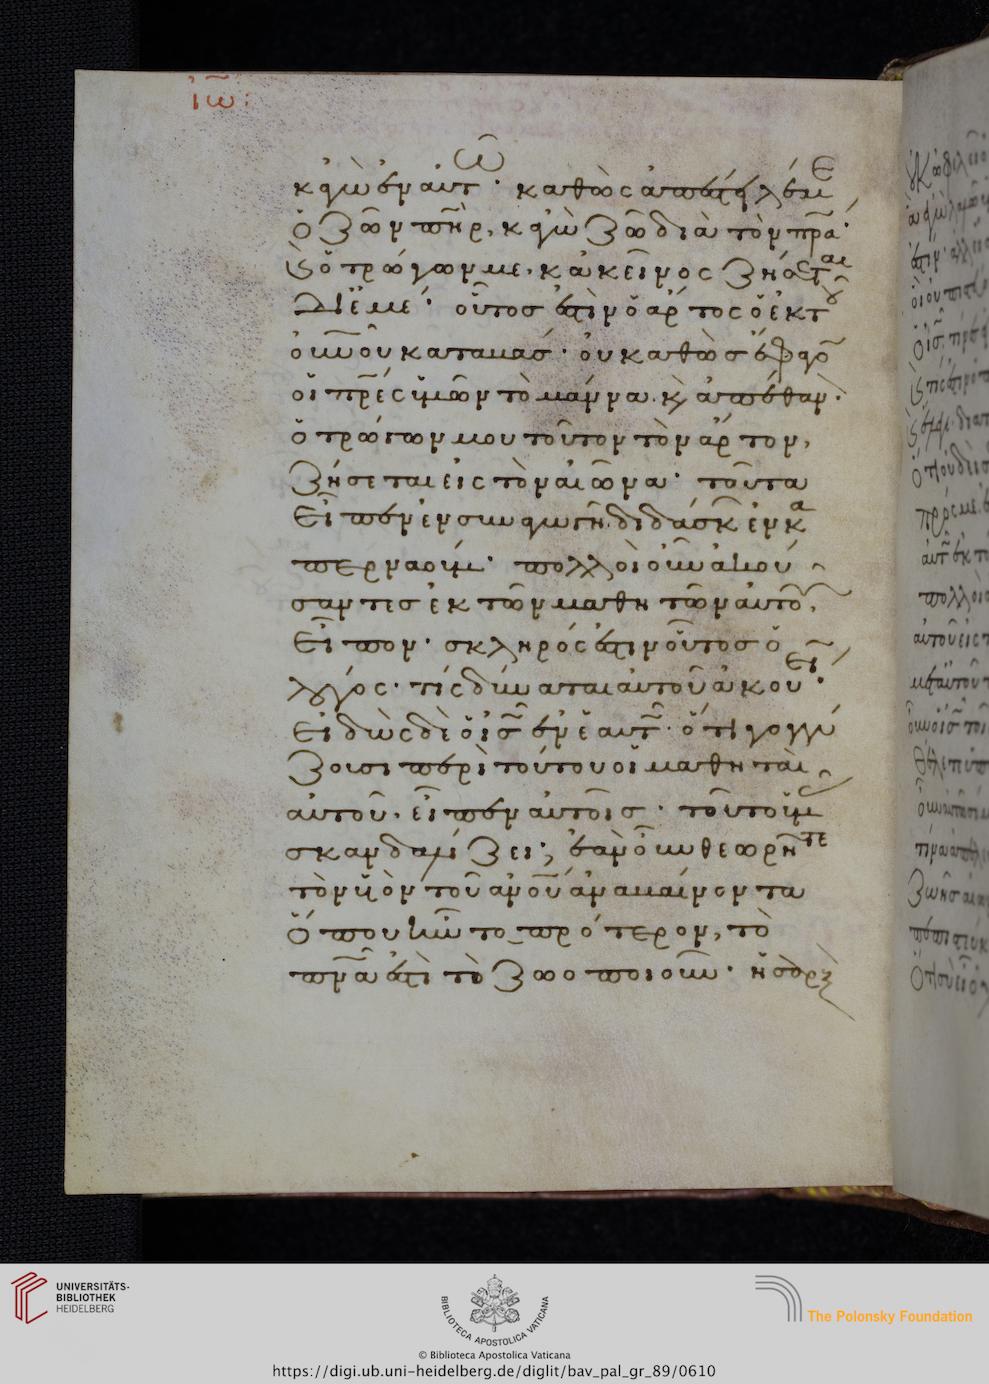 ἰῶ:
κἀγὼ ἐν αὐτῶ· καθὼς ἀπέστειλέ με
ὁ ζῶν πηρ, κἀγὼ ζῶ διὰ τὸν πρα·
ὁ τρώγων με, κἀκεῖνος ζήσεται
δι' ἐμέ· οὗτος ἐστὶν ὁ ἄρτος ὁ ἐκ τοῦ
οὐνοῦ καταβάς· οὐ καθὼς ἔφαγον
οἱ πρες ὑμῶν τὸ μάννα κ ἀπέθανον·
ὁ τρώγων μου τοῦτον τὸν ἄρτον,
ζήσεται εἰς τὸν αἰῶνα· ταῦτα
εἶπεν ἐν συναγωγῆ διδάσκων ἐν κα
περναούμ· πολλοὶ οὖν ἀκού
σαντες ἐκ τῶν μαθητῶν αὐτοῦ,
εἶπον· σκληρός ἐστιν οὗτος ὁ
λόγος· τίς δύναται αὐτοῦ ἀκούειν·
εἰδὼς δὲ ὁ ἰς ἐν ἑαυτῶ ὅτι γογγύ
ζουσι περὶ τούτου οἱ μαθηταὶ
αὐτοῦ, εἶπεν αὐτοῖς· τοῦτο ὑμᾶς
σκανδαλίζει; ἐὰν οὖν θεωρῆτε
τὸν υἱὸν τοῦ ἀνοῦ ἀναβαίνοντα
ὅπου ἦν τὸ πρότερον, τὸ
πνα ἐστὶ τὸ ζωοποιοῦν· ἡ σὰρξ
UNIVERSITÄTS-
BIBLIOTHEK
HEIDELBERG
BIBLIOTECA APOSTOLICA VATICANA
The Polonsky Foundation
© Biblioteca Apostolica Vaticana
https://digi.ub.uni-heidelberg.de/diglit/bav_pal_gr_89/0610